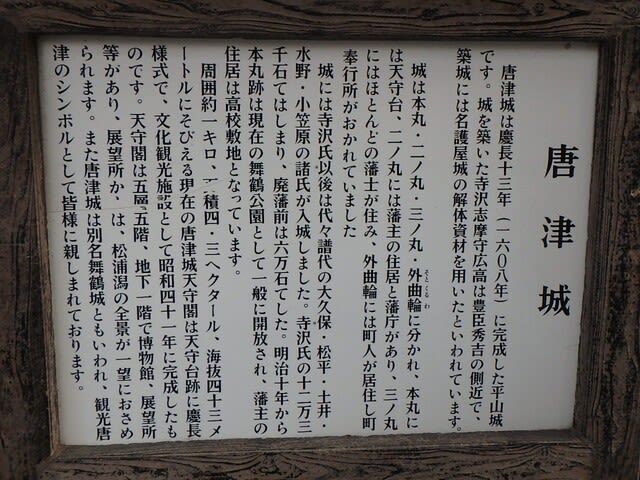 唐津城
唐津城は慶長十三年（一六〇八年）に完成した平山城
です。城を築いた寺沢志摩守広高は豊臣秀吉の側近で、
築城には名護屋城の解体資材を用いたといわれています。
城は本丸・二ノ丸・三ノ丸・外曲輪に分かれ、本丸に
そとくるわ
は天守台、二ノ丸には藩主の住居と藩庁があり、三ノ丸
にはほとんどの藩士が住み、外曲輪には町人が居住し町
奉行所がおかれていました
城には寺沢氏以後は代々譜代の大久保・松平・土井・
水野・小笠原の諸氏が入城しました。寺沢氏の十二万三
千石てはしまり、廃藩前は六万石でした。明治十年から
本丸跡は現在の舞鶴公園として一般に開放され、藩主の
住居は高校敷地となっています。
周囲約一キロ、積四・三ヘクタール、海抜四十三メ
ートルにそびえる現在の唐津城天守閣は天守台跡に慶長
様式で、文化観光施設として昭和四十一年に完成したも
のです。天守閣は五層五階、地下一階で博物館、展望所
等があり、展望所か は、松浦潟の全景が一望におさめ
られます。また唐津城は別名舞鶴城ともいわれ、観光唐
津のシンボルとして皆様に親しまれております。